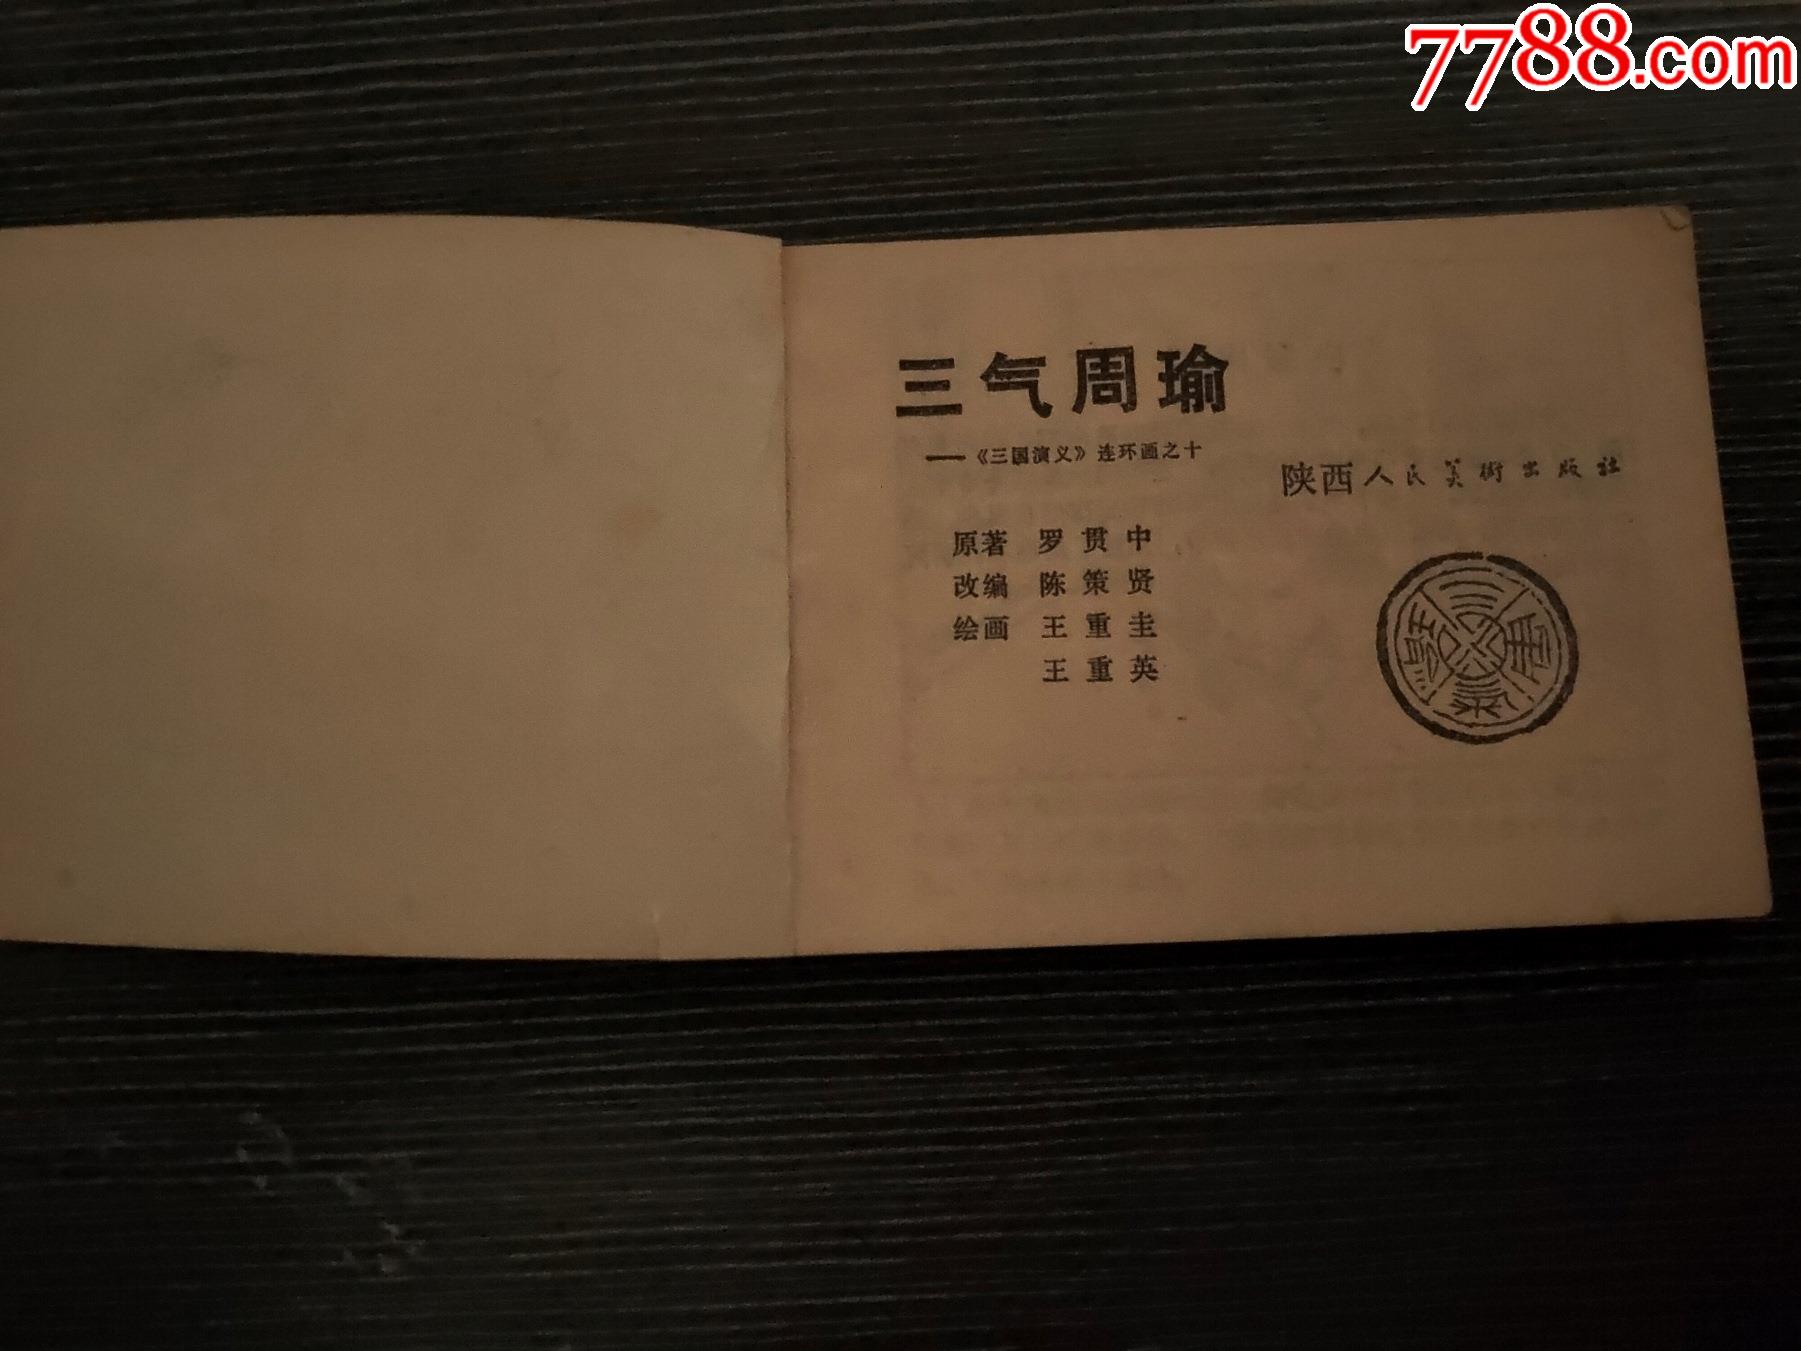 7788.com
三气周瑜
——《三国演义》连环画之十
陕西人民美術出版社
原著 罗贯中
改编 陈策贤
绘画 王重圭
王重英